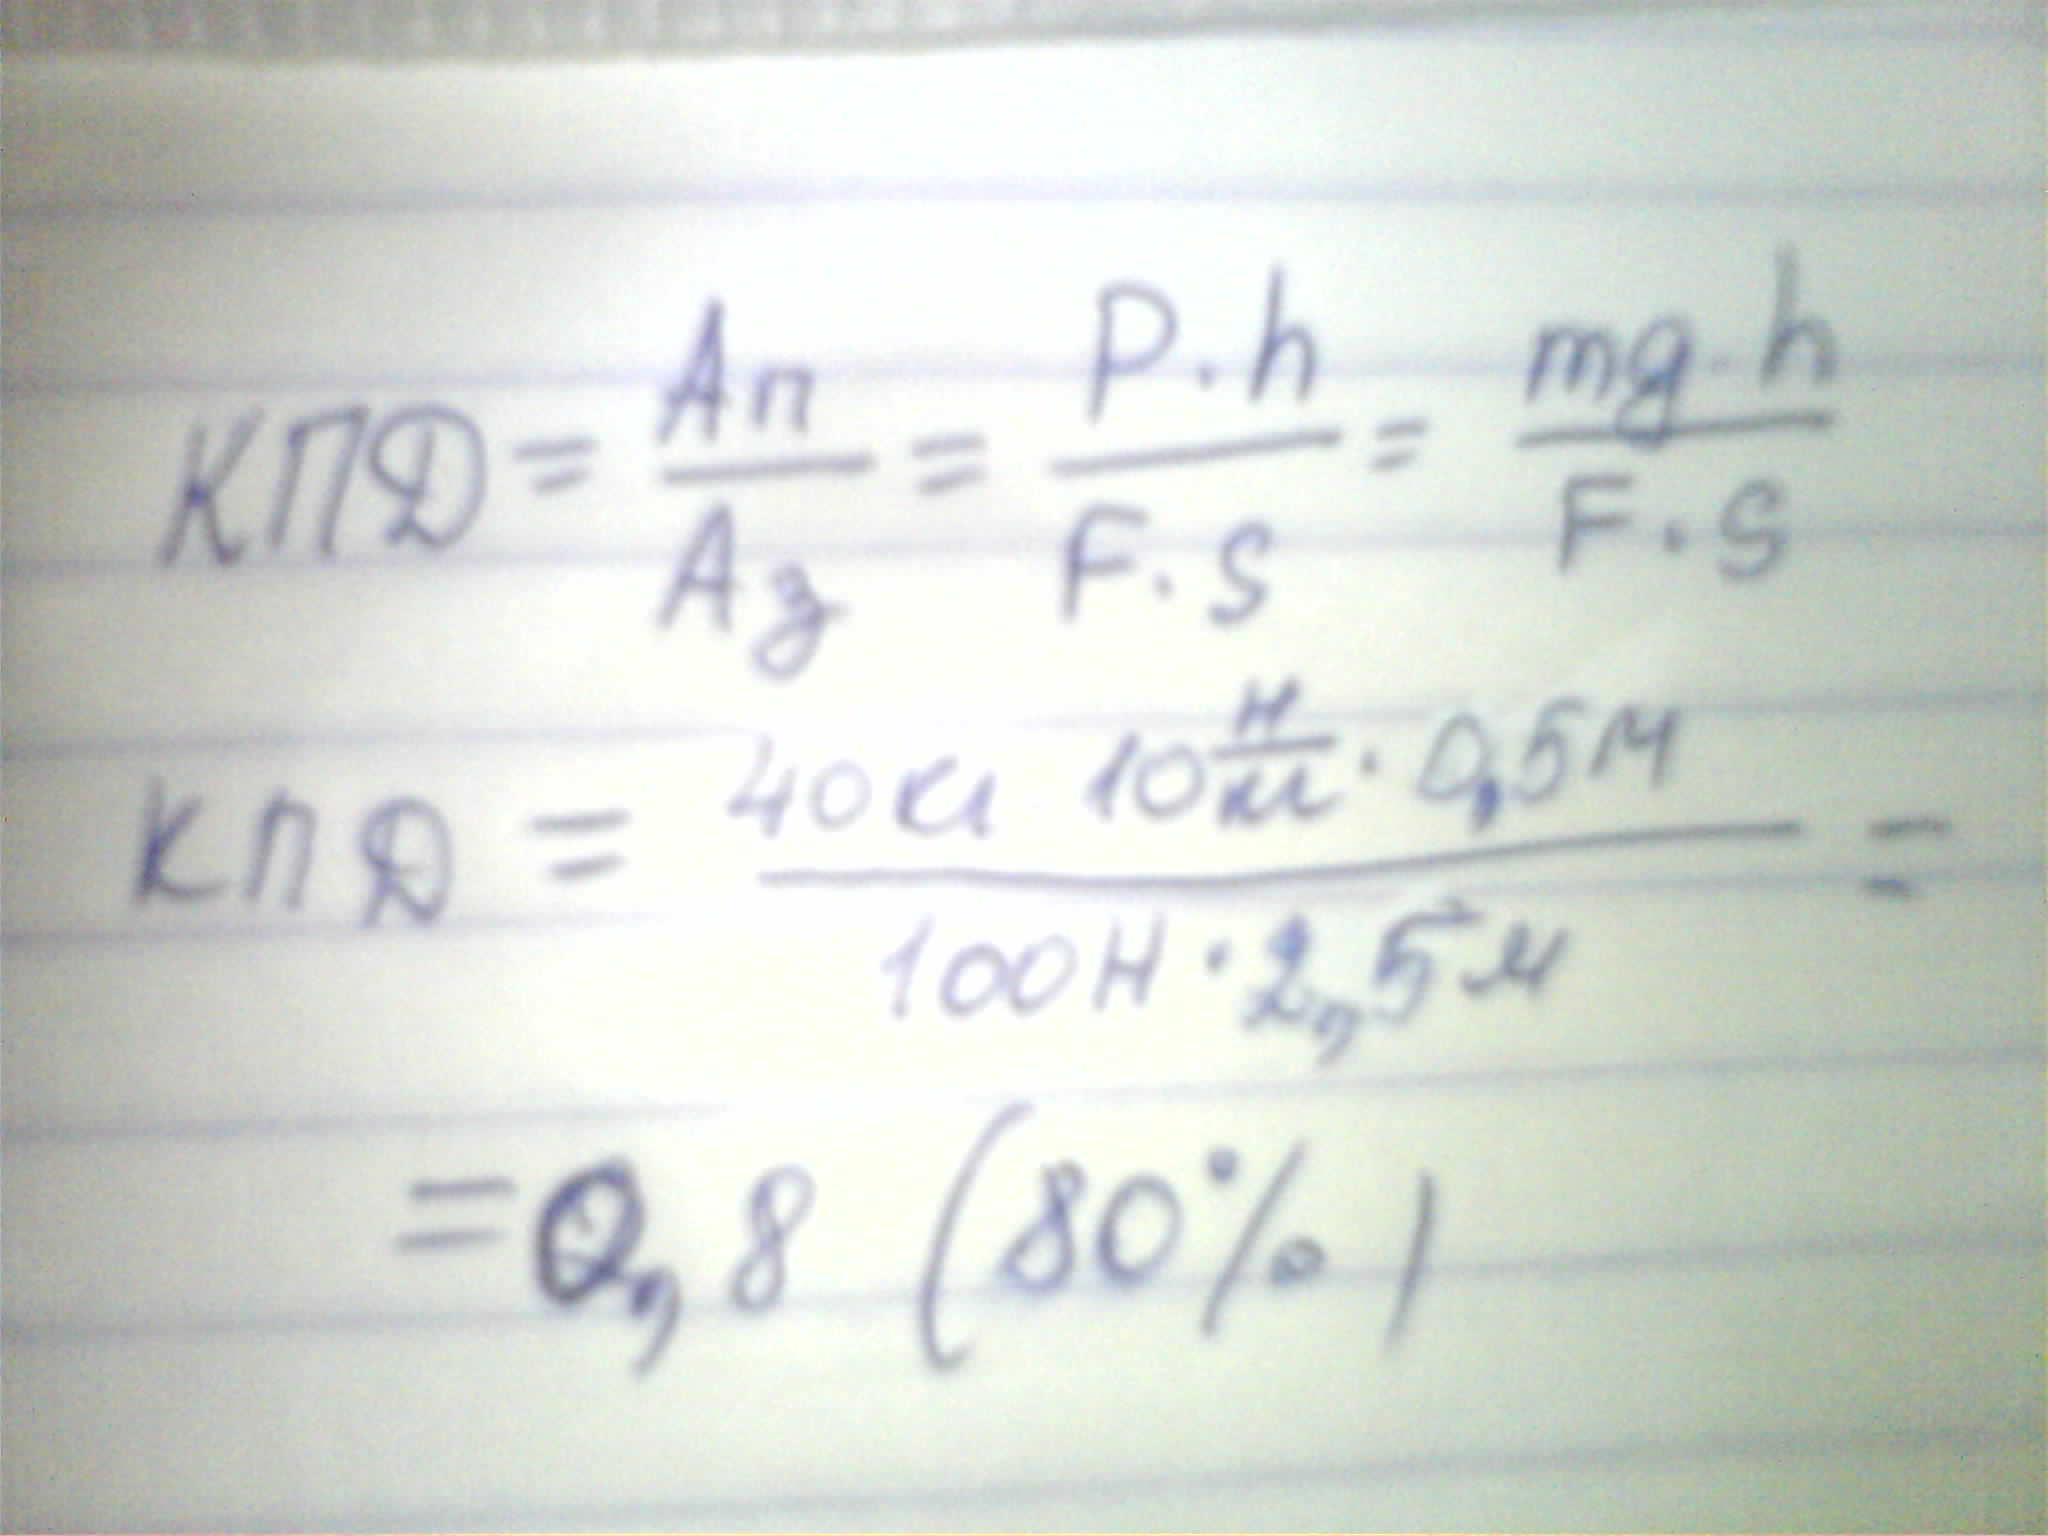 КПД = Ап / Аз = P·h / F·S = mg·h / F·S
КПД = 40кг 10 Н/кг · 0,5м / 100Н · 2,5м =
= 0,8 (80%)